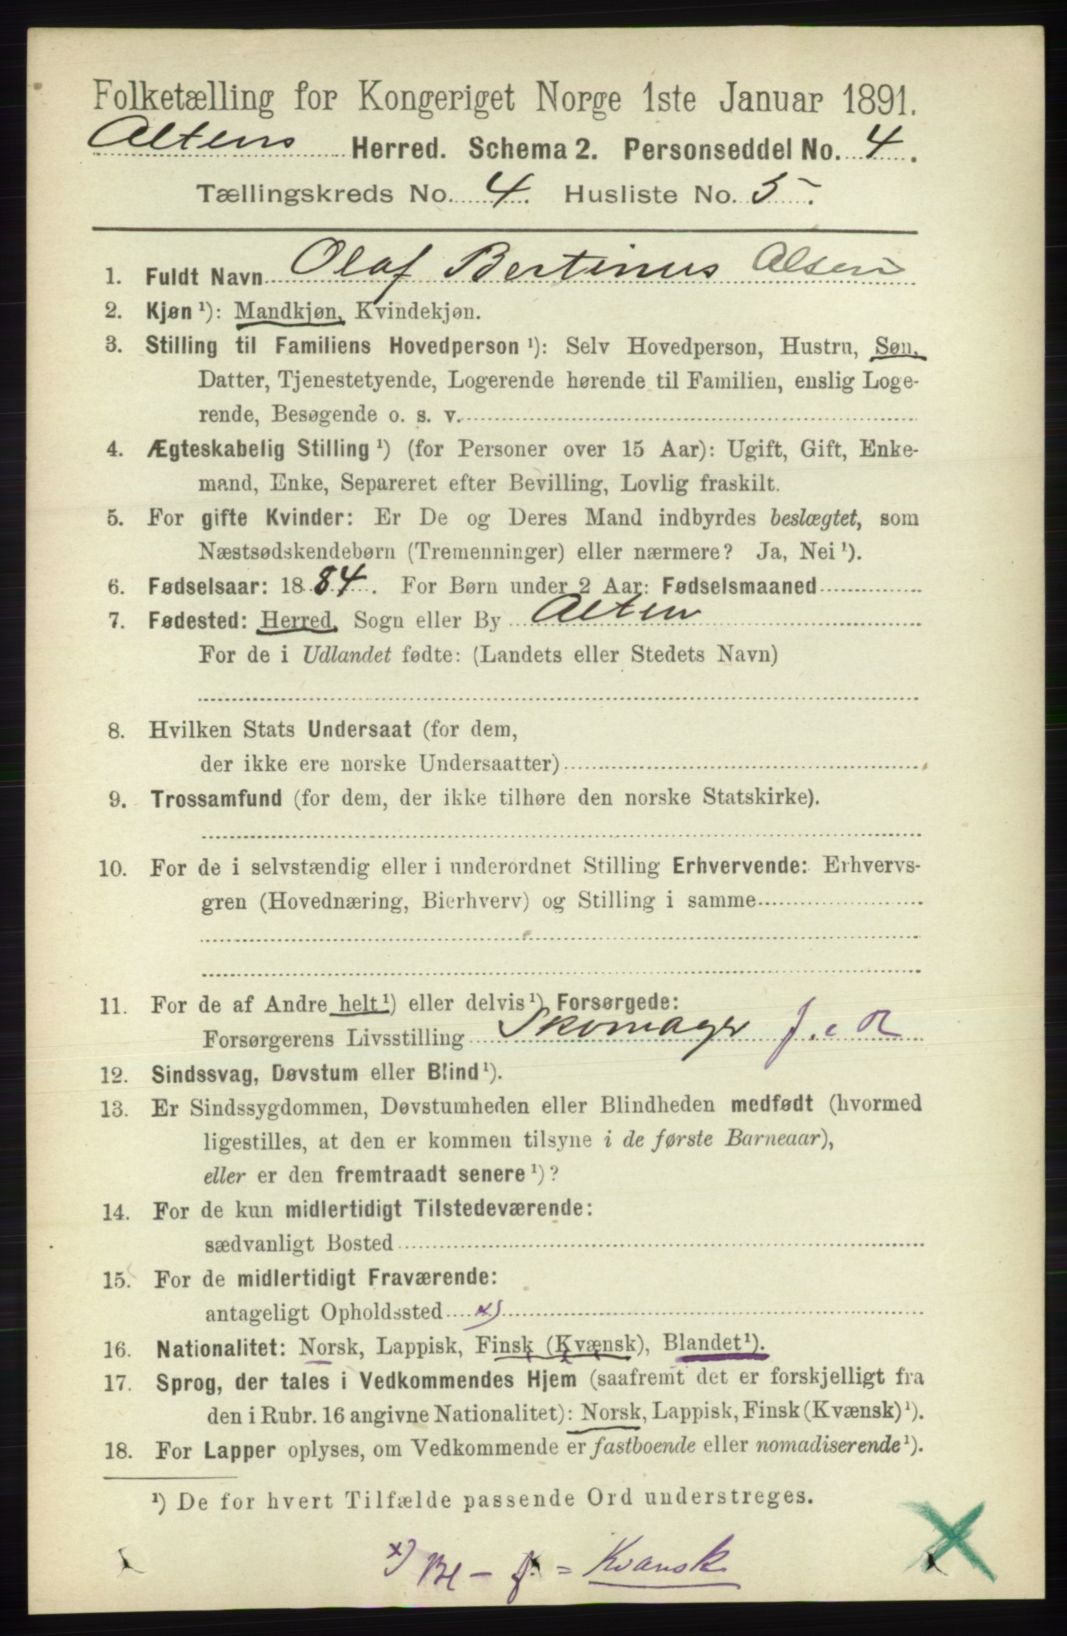 Folketælling for Kongeriget Norge 1ste Januar 1891.
Altens Herred. Schema 2. Personseddel No. 4.
Tællingskreds No. 4. Husliste No. 5.
1. Fuldt Navn Olaf Bertinus Olsen
2. Kjøn ¹): Mandkjøn, Kvindekjøn.
3. Stilling til Familiens Hovedperson ¹): Selv Hovedperson, Hustru, Søn,
Datter, Tjenestetyende, Logerende hørende til Familien, enslig Loge-
rende, Besøgende o. s. v.
4. Ægteskabelig Stilling ¹) (for Personer over 15 Aar): Ugift, Gift, Enke-
mand, Enke, Separeret efter Bevilling, Lovlig fraskilt.
5. For gifte Kvinder: Er De og Deres Mand indbyrdes beslægtet, som
Næstsødskendebørn (Tremenninger) eller nærmere? Ja, Nei ¹).
6. Fødselsaar: 1884. For Børn under 2 Aar: Fødselsmaaned
7. Fødested: Herred, Sogn eller By Alten
For de i Udlandet fødte: (Landets eller Stedets Navn)
8. Hvilken Stats Undersaat (for dem,
der ikke ere norske Undersaatter)
9. Trossamfund (for dem, der ikke tilhøre den norske Statskirke).
10. For de i selvstændig eller i underordnet Stilling Erhvervende: Erhvervs-
gren (Hovednæring, Bierhverv) og Stilling i samme
11. For de af Andre helt ¹) eller delvis ¹) Forsørgede:
Forsørgerens Livsstilling Skomager
12. Sindssvag, Døvstum eller Blind ¹).
13. Er Sindssygdommen, Døvstumheden eller Blindheden medfødt (hvormed
ligestilles, at den er kommen tilsyne i de første Barneaar),
eller er den fremtraadt senere ¹)?
14. For de kun midlertidigt Tilstedeværende:
sædvanligt Bosted
15. For de midlertidigt Fraværende:
antageligt Opholdssted x)
16. Nationalitet: Norsk, Lappisk, Finsk (Kvænsk), Blandet ¹).
17. Sprog, der tales i Vedkommendes Hjem (saafremt det er forskjelligt fra
den i Rubr. 16 angivne Nationalitet): Norsk, Lappisk, Finsk (Kvænsk) ¹).
18. For Lapper oplyses, om Vedkommende er fastboende eller nomadiserende ¹).
¹) De for hvert Tilfælde passende Ord understreges.
x) Bl - f. = Kvænsk